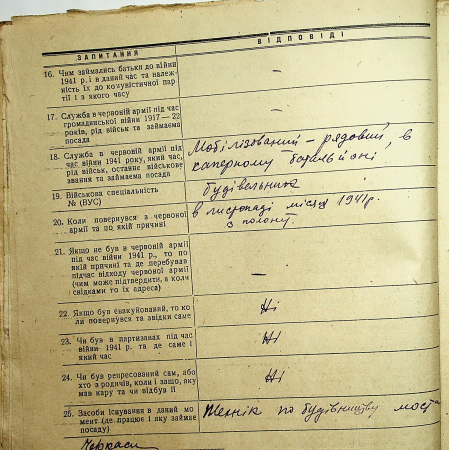 ЗАПИТАННЯ
ВІДПОВІДІ
16. Чим займались батьки до війни
1941 р. і в даний час та належ-
ність їх до комуністичної пар-
тії і з якого часу
—
17. Служба в червоній армії під час
громадянської війни 1917—22
років, рід військ та займаєма
посада
—
18. Служба в червоній армії під
час війни 1941 року, який час,
рід військ, останнє військове
звання та займаєма посада
Мобілізований – рядовий, в
саперному батальйоні
19. Військова спеціальність
№ (ВУС)
будівельник
20. Коли повернувся з червоної
армії та по якій причині
в листопаді місяці 1941 р.
з полону.
21. Якщо не був в червоній армії
під час війни 1941 р., то по
якій причині та де перебував
підчас відходу червоної армії
(чим може підтвердити, а коли
свідками то їх адреса)
—
22. Якщо був евакуйований, то ко-
ли повернувся та звідки саме
Ні
23. Чи був в партизанах під час
війни 1941 р. та де саме і
який час
Ні
24. Чи був репресований сам, або
хто з родичів, коли і защо, яку
мав кару та чи відбув її
Ні
25. Засоби існування в даний мо-
мент (де працює і яку займає
посаду)
Технік по будівництву моста
Черкаси